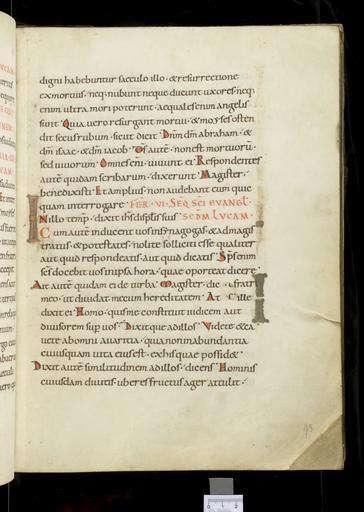 digni habebuntur saeculo illo · & resurrectione
ex mortuis · neq; nubunt neque ducunt uxores · neq;
enim ultra mori poterunt · aequales enim angelis
sunt · Quia uero resurgant mortui · & moyses osten
dit secus rubum · sicut dicit · Dnm dm abraham · &
dm isaac · & dm iacob · Ds autē non est mortuorū ·
sed uiuorum · Omnes enī uiuunt ei · Respondentes
autē quidam scribarum · dixerunt · Magister ·
bene dixisti · Et amplius non audebant eum quic
quam interrogare · FER · VI · SEQ SCI EVANGL ·
In illo temp · dixit ihs discipulis suis SCDM LVCAM ·
Cum autē inducent uos in synagogas · & ad magis
tratus · & potestates · nolite solliciti esse qualiter
aut quid respondeatis · aut quid dicatis · Sps enim
scs docebit uos in ipsa hora · quae oporteat dicere ·
Ait autē quidam ei de turba · Magister · dic fratri
meo · ut diuidat mecum hereditatem · At ille
dixit ei · Homo · quis me constituit iudicem aut
diuisorem sup uos · Dixitque ad illos · Videte & ca
uete ab omni auaritia · quia non in abundantia
cuiusquam uita eius est · ex his quae possid&
Dixit autē similitudinem ad illos · dicens · Hominis
cuiusdam diuitis uberes fructus ager attulit ·